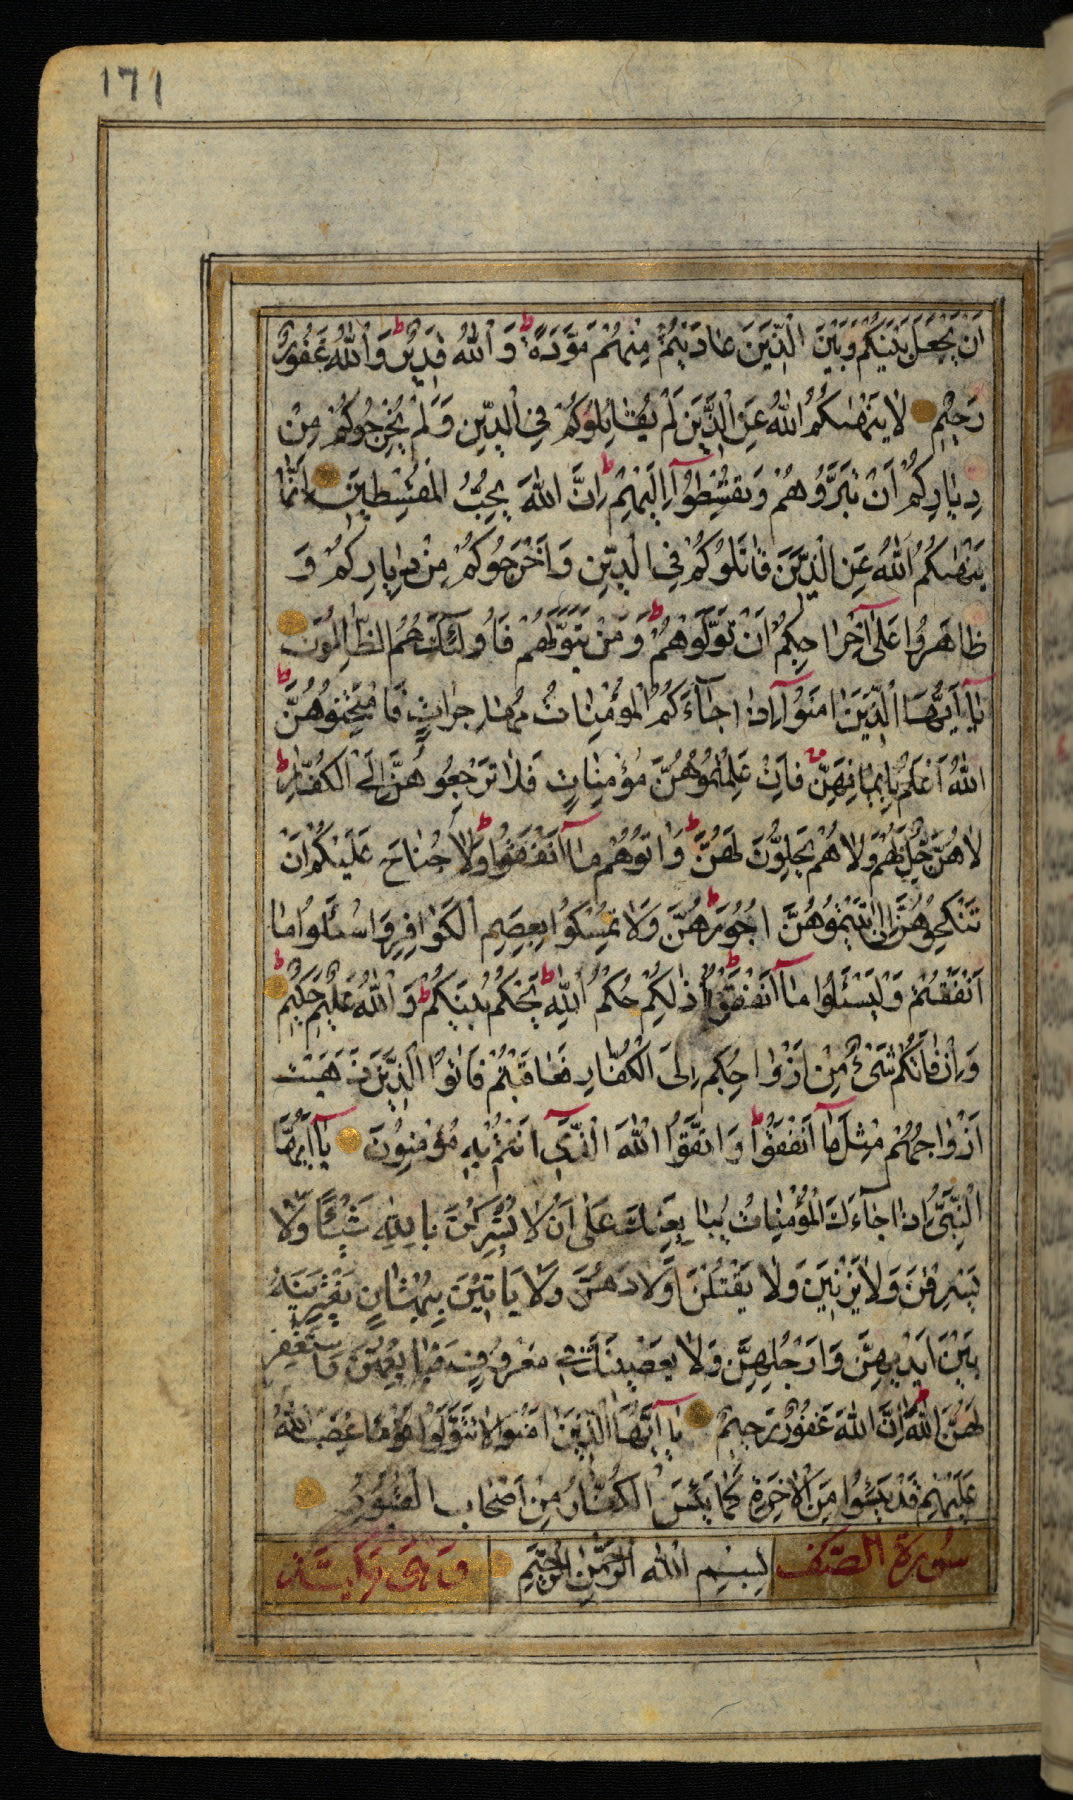 171
اَنْ يَجْعَلَ بَيْنَكُمْ وَبَيْنَ الَّذِينَ عَادَيْتُمْ مِنْهُمْ مَوَدَّةً ط وَاللّٰهُ قَدِيرٌ ط وَاللّٰهُ غَفُورٌ
رَحِيمٌ لَا يَنْهٰىكُمُ اللّٰهُ عَنِ الَّذِينَ لَمْ يُقَاتِلُوكُمْ فِي الدِّينِ وَلَمْ يُخْرِجُوكُمْ مِنْ
دِيَارِكُمْ اَنْ تَبَرُّوهُمْ وَتُقْسِطُوٓا اِلَيْهِمْ ط اِنَّ اللّٰهَ يُحِبُّ الْمُقْسِطِينَ اِنَّمَا
يَنْهٰىكُمُ اللّٰهُ عَنِ الَّذِينَ قَاتَلُوكُمْ فِي الدِّينِ وَاَخْرَجُوكُمْ مِنْ دِيَارِكُمْ وَ
ظَاهَرُوا عَلٰٓى اِخْرَاجِكُمْ اَنْ تَوَلَّوْهُمْ ط وَمَنْ يَتَوَلَّهُمْ فَاُولٰٓئِكَ هُمُ الظَّالِمُونَ
يَآ اَيُّهَا الَّذِينَ اٰمَنُوٓا اِذَا جَآءَكُمُ الْمُؤْمِنَاتُ مُهَاجِرَاتٍ فَامْتَحِنُوهُنَّ ط
اللّٰهُ اَعْلَمُ بِاِيمَانِهِنَّ فَاِنْ عَلِمْتُمُوهُنَّ مُؤْمِنَاتٍ فَلَا تَرْجِعُوهُنَّ اِلَى الْكُفَّارِ ط
لَا هُنَّ حِلٌّ لَهُمْ وَلَا هُمْ يَحِلُّونَ لَهُنَّ ط وَاٰتُوهُمْ مَآ اَنْفَقُوا ط وَلَا جُنَاحَ عَلَيْكُمْ اَنْ
تَنْكِحُوهُنَّ اِذَا اٰتَيْتُمُوهُنَّ اُجُورَهُنَّ ط وَلَا تُمْسِكُوا بِعِصَمِ الْكَوَافِرِ وَاسْئَلُوا مَا
اَنْفَقْتُمْ وَلْيَسْئَلُوا مَآ اَنْفَقُوا ط ذٰلِكُمْ حُكْمُ اللّٰهِ ط يَحْكُمُ بَيْنَكُمْ ط وَاللّٰهُ عَلِيمٌ حَكِيمٌ ط
وَاِنْ فَاتَكُمْ شَىْءٌ مِنْ اَزْوَاجِكُمْ اِلَى الْكُفَّارِ فَعَاقَبْتُمْ فَاٰتُوا الَّذِينَ ذَهَبَتْ
اَزْوَاجُهُمْ مِثْلَ مَآ اَنْفَقُوا ط وَاتَّقُوا اللّٰهَ الَّذِىٓ اَنْتُمْ بِهِ مُؤْمِنُونَ يَآ اَيُّهَا
النَّبِىُّ اِذَا جَآءَكَ الْمُؤْمِنَاتُ يُبَايِعْنَكَ عَلٰى اَنْ لَا يُشْرِكْنَ بِاللّٰهِ شَيْئًا وَلَا
يَسْرِقْنَ وَلَا يَزْنِينَ وَلَا يَقْتُلْنَ اَوْلَادَهُنَّ وَلَا يَأْتِينَ بِبُهْتَانٍ يَفْتَرِينَهُ
بَيْنَ اَيْدِيهِنَّ وَاَرْجُلِهِنَّ وَلَا يَعْصِينَكَ فِي مَعْرُوفٍ فَبَايِعْهُنَّ وَاسْتَغْفِرْ
لَهُنَّ اللّٰهَ ط اِنَّ اللّٰهَ غَفُورٌ رَحِيمٌ يَآ اَيُّهَا الَّذِينَ اٰمَنُوا لَا تَتَوَلَّوْا قَوْمًا غَضِبَ اللّٰهُ
عَلَيْهِمْ قَدْ يَئِسُوا مِنَ الْاٰخِرَةِ كَمَا يَئِسَ الْكُفَّارُ مِنْ اَصْحَابِ الْقُبُورِ
سُورَةُ الصَّفِّ بِسْمِ اللّٰهِ الرَّحْمٰنِ الرَّحِيمِ